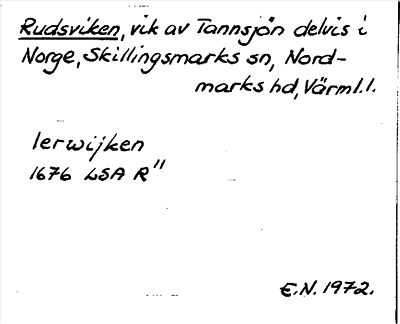 Rudsviken, vik av Tannsjön delvis i
Norge, Skillingsmarks sn, Nord-
marks hd, Värml.l.
lerwijken
1676 LSA R"
E.N. 1972.